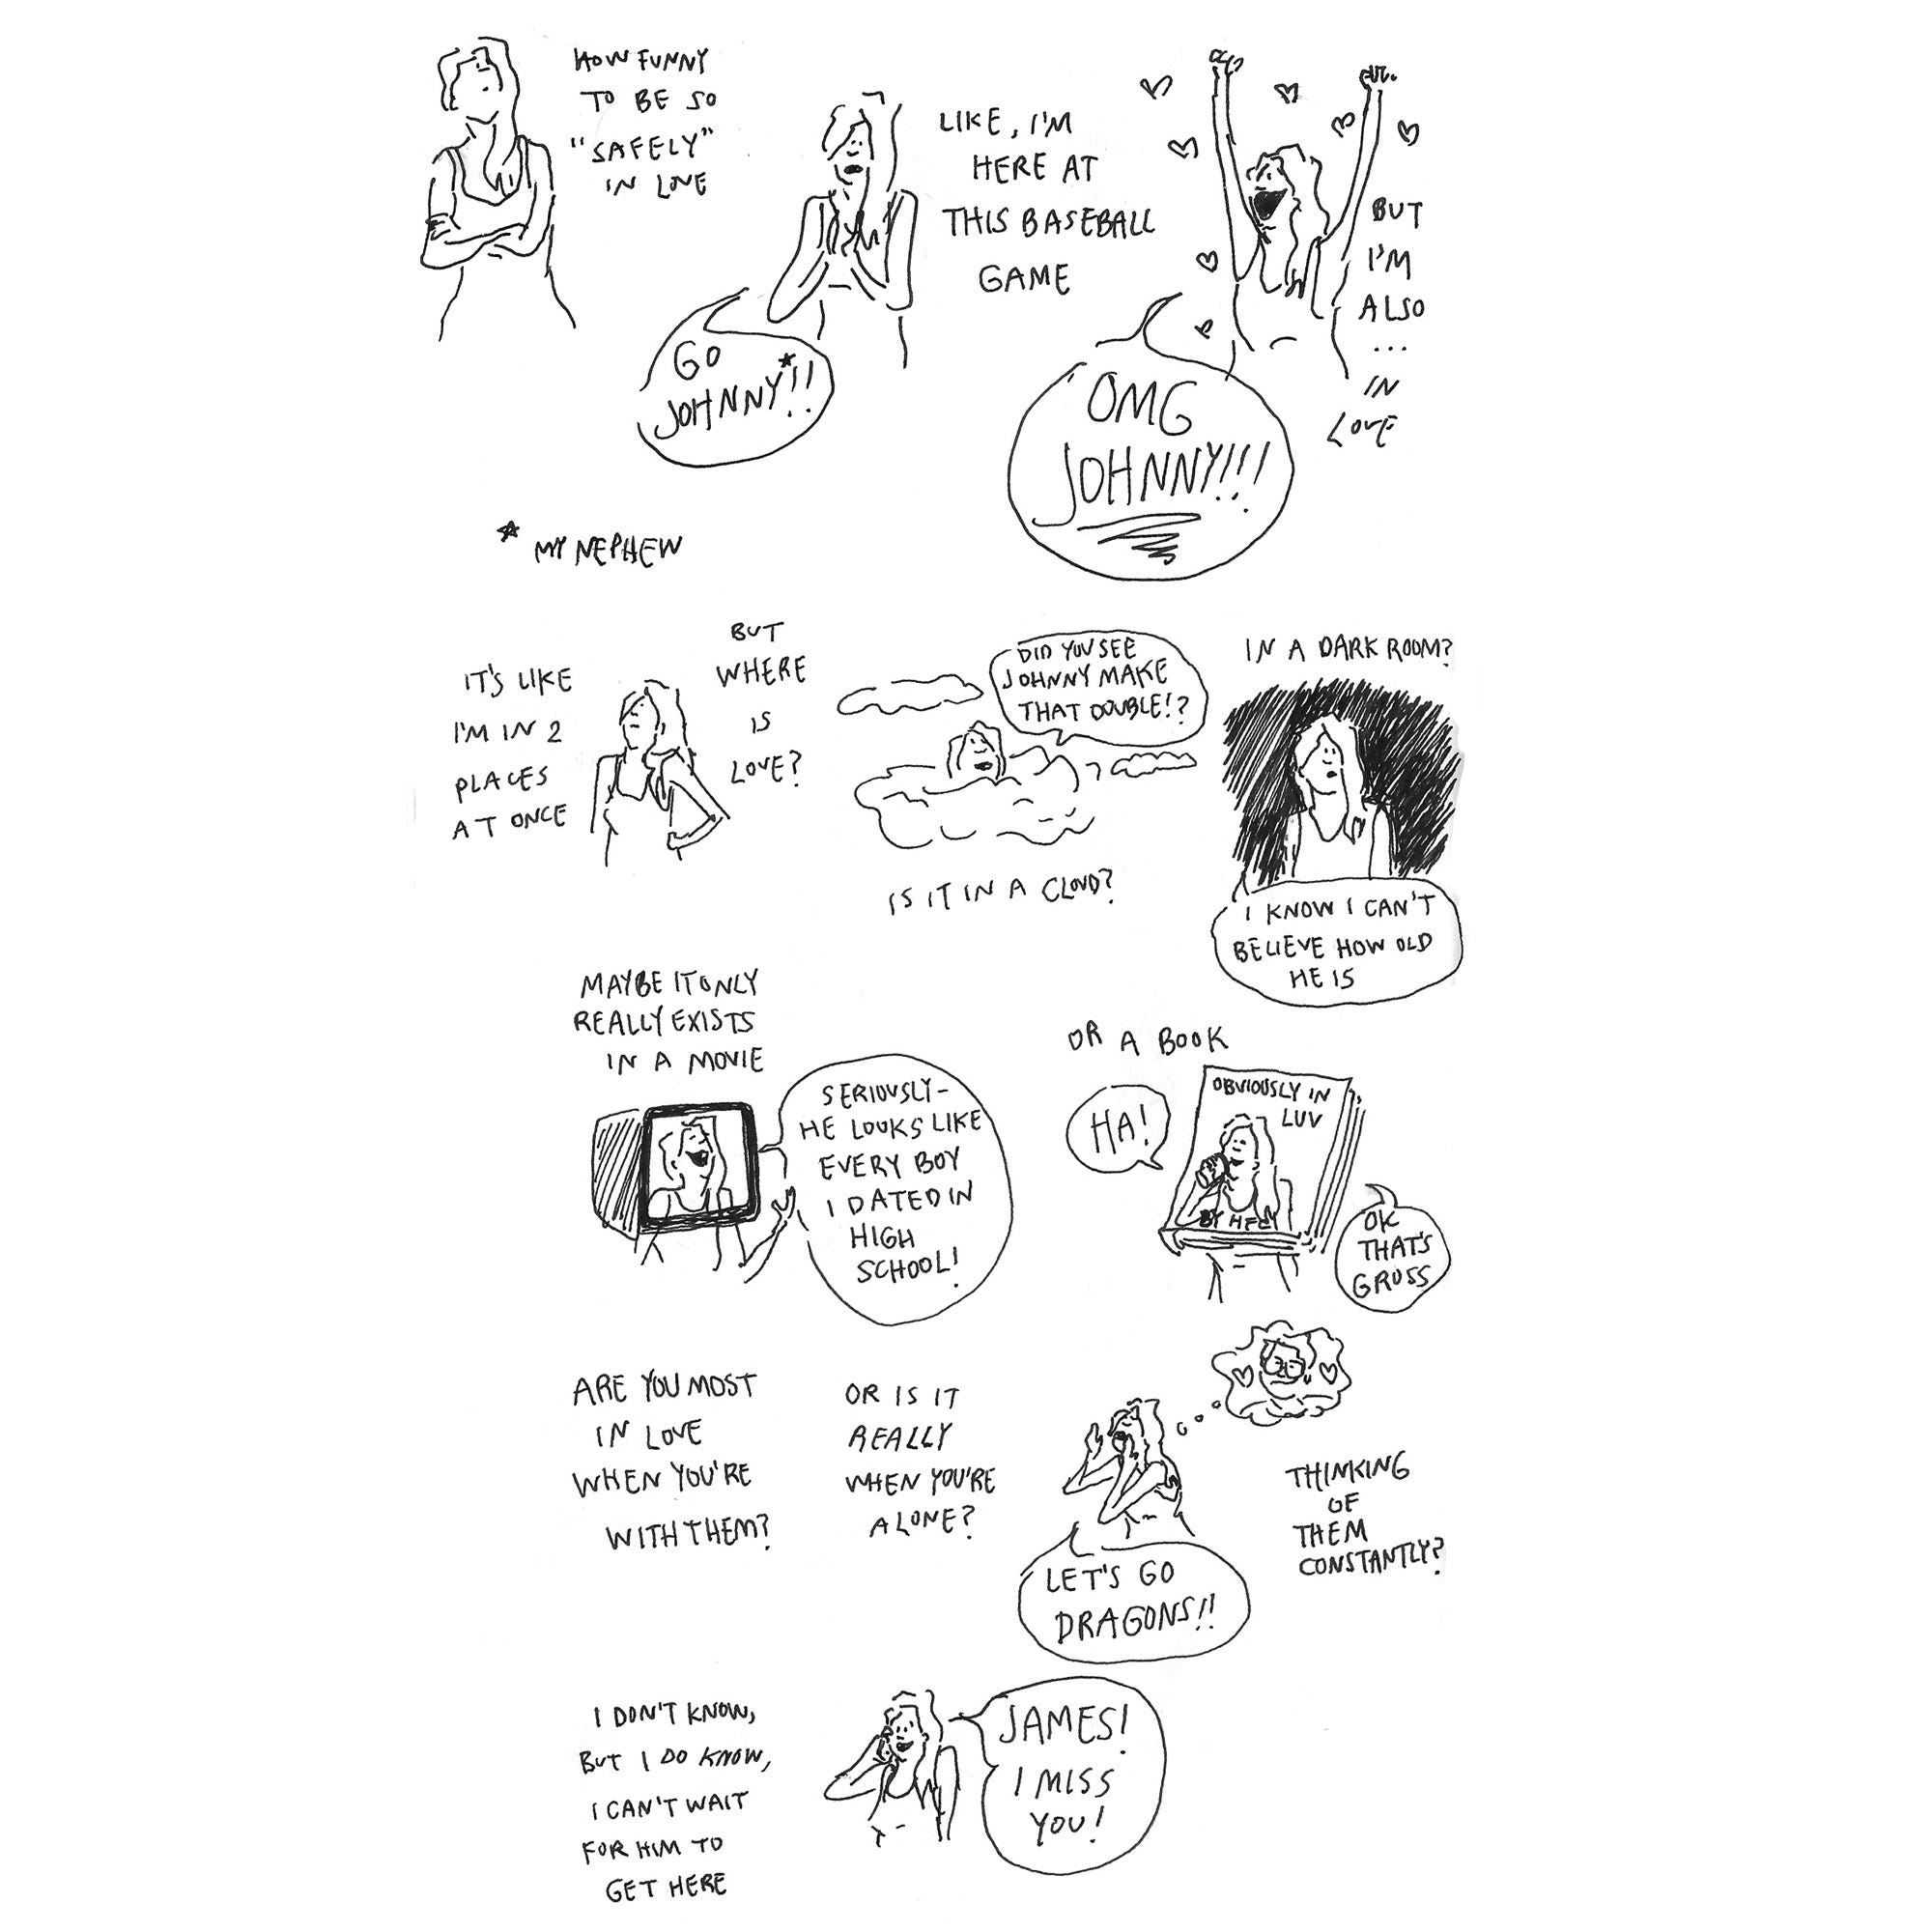 HOW FUNNY
TO BE SO
"SAFELY"
IN LOVE
GO
JOHNNY*!!
LIKE, I'M
HERE AT
THIS BASEBALL
GAME
OMG
JOHNNY!!!
BUT
I'M
ALSO
...
IN
LOVE
* MY NEPHEW
IT'S LIKE
I'M IN 2
PLACES
AT ONCE
BUT
WHERE
IS
LOVE?
DID YOU SEE
JOHNNY MAKE
THAT DOUBLE!?
IS IT IN A CLOUD?
IN A DARK ROOM?
I KNOW I CAN'T
BELIEVE HOW OLD
HE IS
MAYBE IT ONLY
REALLY EXISTS
IN A MOVIE
SERIOUSLY-
HE LOOKS LIKE
EVERY BOY
I DATED IN
HIGH
SCHOOL!
OR A BOOK
HA!
OBVIOUSLY IN
LUV
BY
OK
THAT'S
GROSS
ARE YOU MOST
IN LOVE
WHEN YOU'RE
WITH THEM?
OR IS IT
REALLY
WHEN YOU'RE
ALONE?
LET'S GO
DRAGONS!!
THINKING
OF
THEM
CONSTANTLY?
I DON'T KNOW,
BUT I DO KNOW,
I CAN'T WAIT
FOR HIM TO
GET HERE
JAMES!
I MISS
YOU!